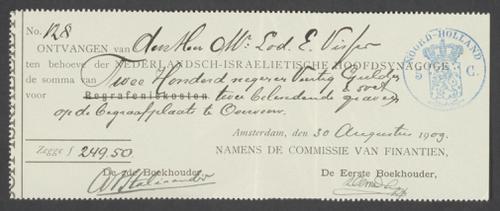 No. 128
ONTVANGEN van den Heer Mr. Lod. E. Visser
ten behoeve der NEDERLANDSCH-ISRAELIETISCHE HOOFDSYNAGOGE
de somma van Twee Honderd negen en Veertig Gulden
5 Oct
voor Begrafeniskosten twee belendende graven
op de begraafplaats te
Amsterdam, den 30 Augustus 1909.
Zegge ƒ 249.50
NAMENS DE COMMISSIE VAN FINANTIEN,
De 2de Boekhouder,
De Eerste Boekhouder,
NOORD-HOLLAND
5 C.